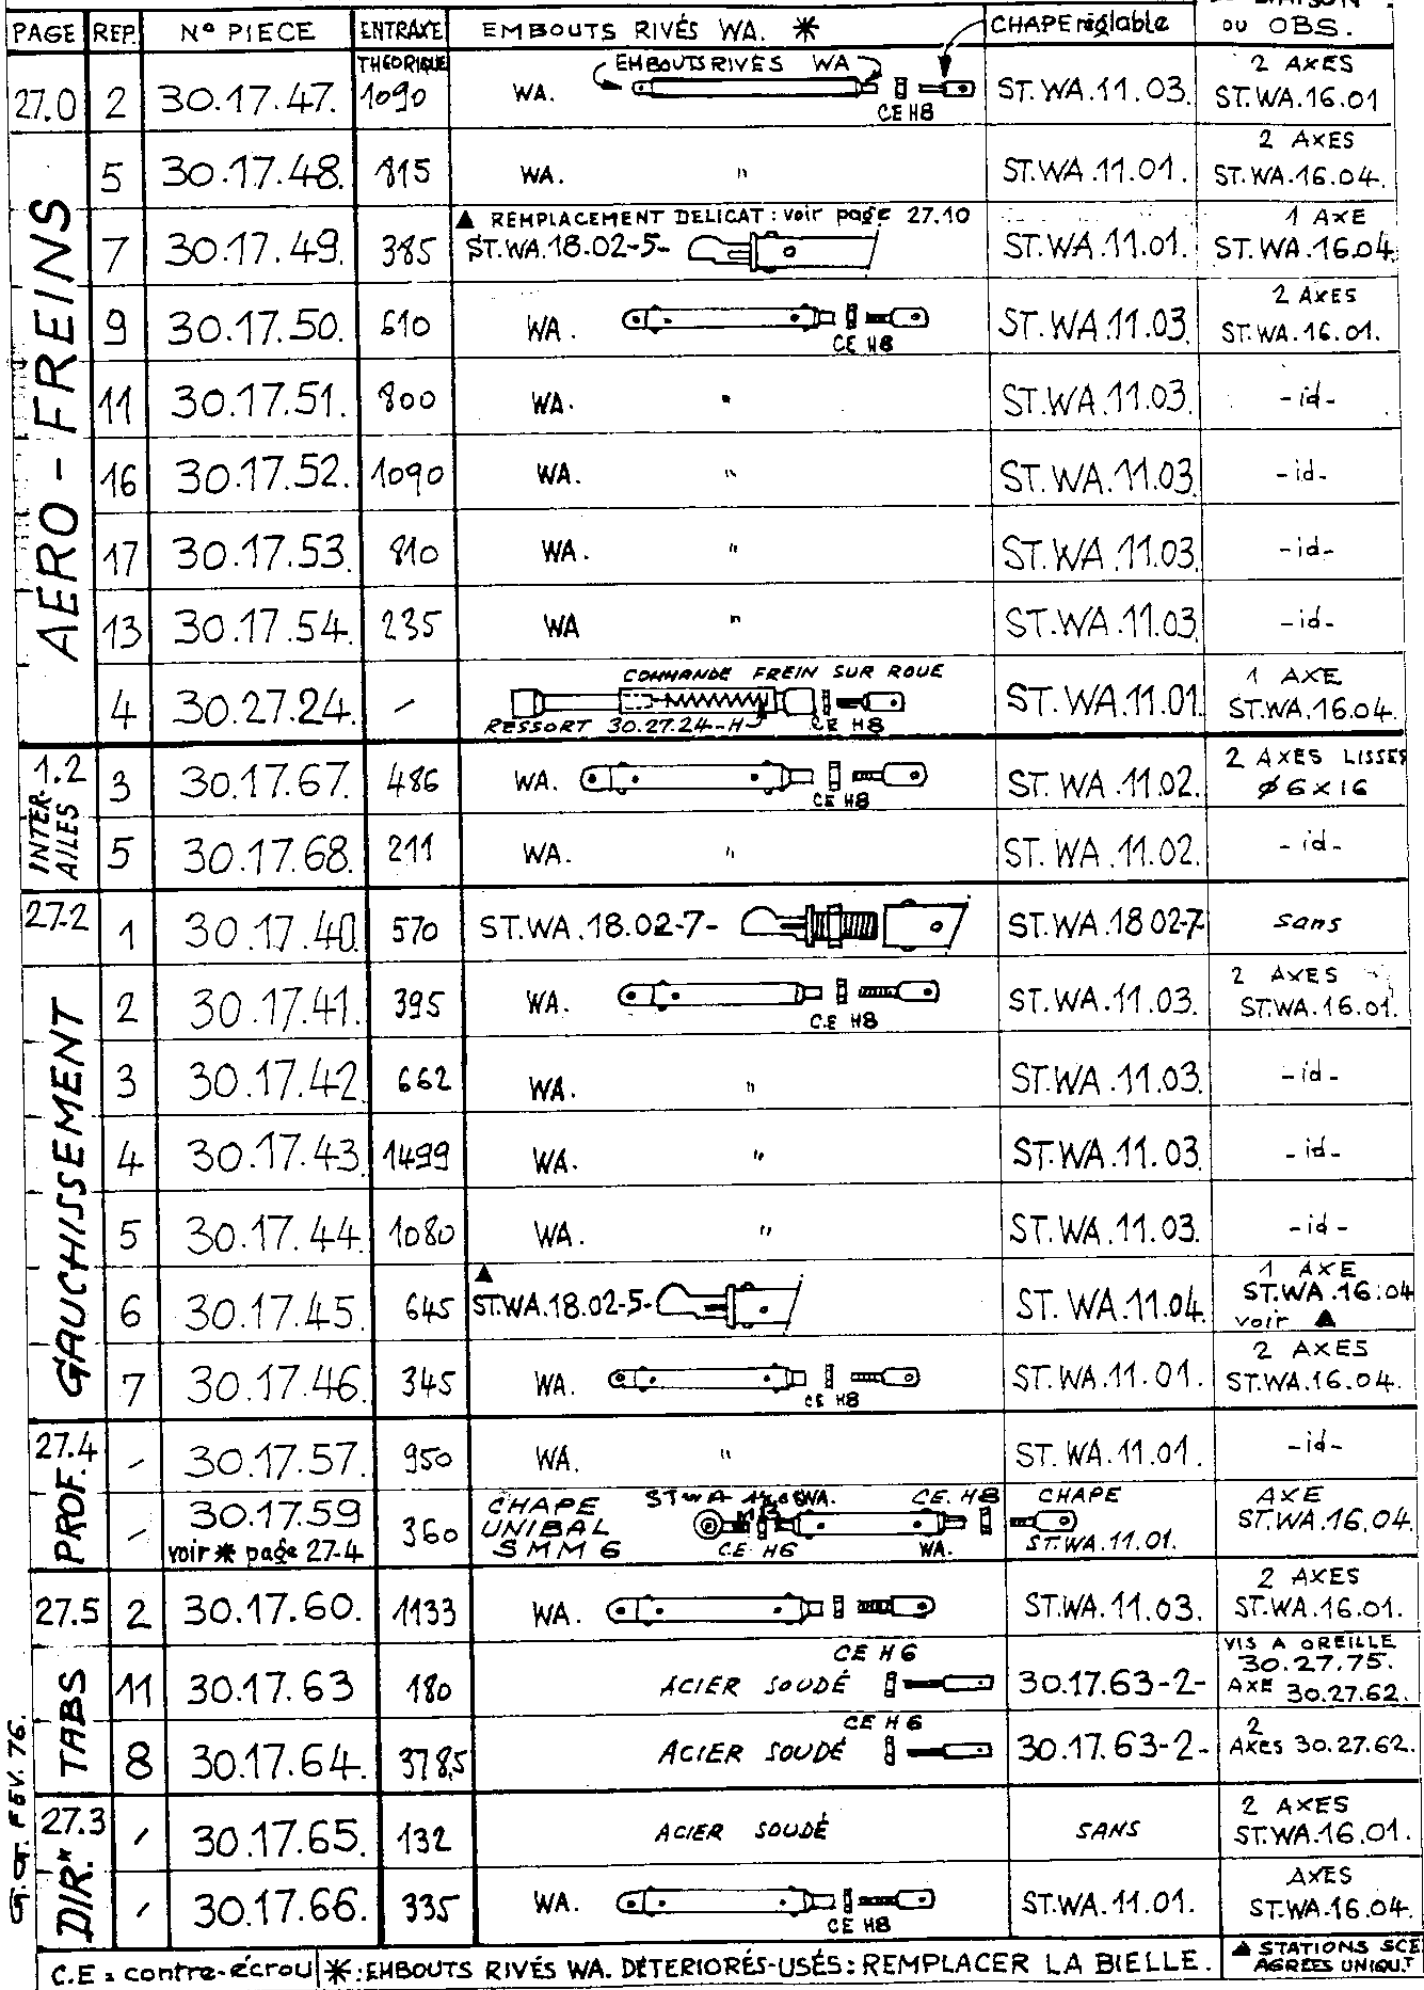 PAGE REP. Nº PIECE ENTRAXE THEORIQUE EMBOUTS RIVÉS WA. * CHAPE réglable OU OBS.
27.0 2 30.17.47. 1090 WA. EMBOUTS RIVÉS WA CE H8 ST.WA.11.03. 2 AXES ST.WA.16.01
AERO-FREINS
5 30.17.48. 815 WA. " ST.WA.11.01. 2 AXES ST.WA.16.04.
▲ REMPLACEMENT DELICAT: voir page 27.10
7 30.17.49. 385 ST.WA.18.02-5- ST.WA.11.01. 1 AXE ST.WA.16.04
9 30.17.50. 610 WA. CE H8 ST.WA.11.03 2 AXES ST.WA.16.01.
11 30.17.51. 800 WA. " ST.WA.11.03. -id-
16 30.17.52. 1090 WA. " ST.WA.11.03 -id-
17 30.17.53. 810 WA. " ST.WA.11.03. -id-
13 30.17.54. 235 WA " ST.WA.11.03 -id-
COMMANDE FREIN SUR ROUE
4 30.27.24. - RESSORT 30.27.24-H CE H8 ST.WA.11.01. 1 AXE ST.WA.16.04.
1.2 INTER-AILES
3 30.17.67. 486 WA. CE H8 ST.WA.11.02. 2 AXES LISSES ø 6x16
5 30.17.68. 211 WA. " ST.WA.11.02. -id-
27.2 1 30.17.40. 570 ST.WA.18.02-7- ST.WA.18 02-7- sans
GAUCHISSEMENT
2 30.17.41. 395 WA. C.E H8 ST.WA.11.03. 2 AXES ST.WA.16.01.
3 30.17.42 662 WA. " ST.WA.11.03. -id-
4 30.17.43. 1499 WA. " ST.WA.11.03. -id-
5 30.17.44. 1080 WA. " ST.WA.11.03. -id-
6 30.17.45. 645 ▲ ST.WA.18.02-5- ST.WA.11.04. 1 AXE ST.WA.16.04 voir ▲
7 30.17.46. 345 WA. CE H8 ST.WA.11.01. 2 AXES ST.WA.16.04.
27.4 PROF.
- 30.17.57. 950 WA. " ST.WA.11.01. -id-
- 30.17.59 voir * page 27-4 360 CHAPE UNIBAL SMM6 CE H6 WA. CE. H8 CHAPE ST.WA.11.01. AXE ST.WA.16.04.
27.5 2 30.17.60. 1133 WA. ST.WA.11.03. 2 AXES ST.WA.16.01.
TABS
11 30.17.63 180 ACIER SOUDÉ CE H6 30.17.63-2- VIS A OREILLE 30.27.75. AXE 30.27.62.
8 30.17.64. 378,5 ACIER SOUDÉ CE H6 30.17.63-2- 2 AXES 30.27.62.
27.3 DIR.
- 30.17.65. 132 ACIER SOUDÉ SANS 2 AXES ST.WA.16.01.
- 30.17.66. 335 WA. CE H8 ST.WA.11.01. AXES ST.WA.16.04.
FEV. 76.
C.E = contre-écrou *:EMBOUTS RIVÉS WA. DÉTERIORÉS-USÉS: REMPLACER LA BIELLE. ▲ STATIONS SCE AGREES UNIQU.T